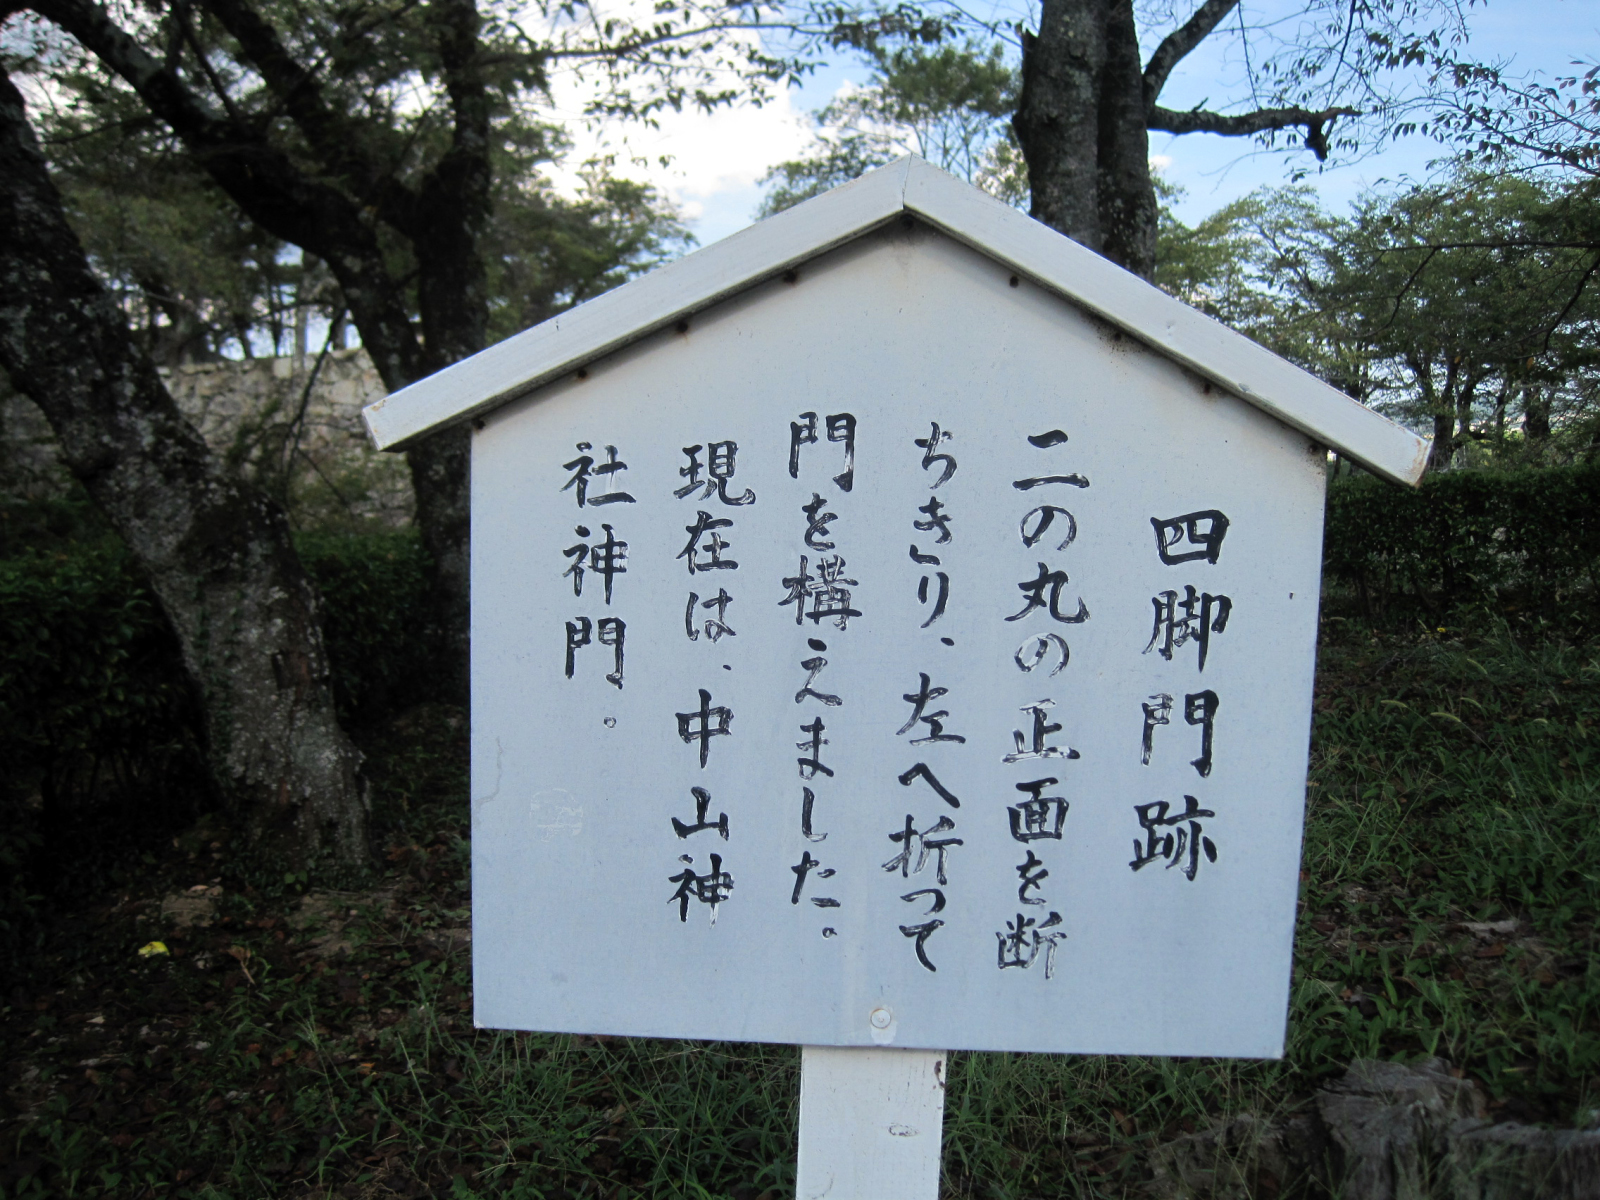 四脚門跡
二の丸の正面を断
ちきり、左へ折って
門を構えました。
現在は、中山神
社神門。